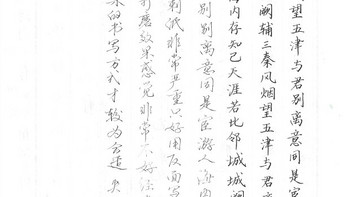 望五津与君别离意同是宦
阙辅三秦风烟望五津与君
内存知己天涯若比邻城城
别别离意同是宦游人海内
刺纸非常严重只好用反面写
打磨效果感觉非常不好
的书写方式才较为合适